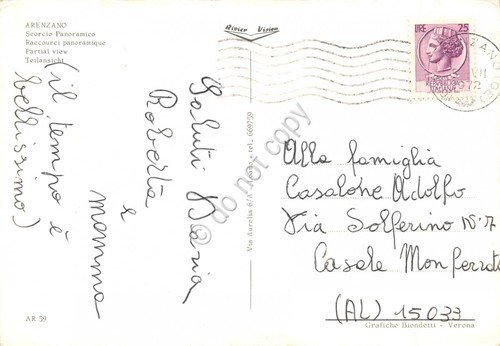 ARENZANO
Scorcio Panoramico
Raccourci panoramique
Partial view
Teilansicht
Rivier Vision
LIRE 25
REPUBBLICA
ITALIANA
Saluti
Roberta
e
mamma
(il tempo è
bellissimo)
Via Aurelia tel. 669759
do not copy
Alla famiglia
Casalone Adolfo
Via Solferino N° 7
Casale Monferrato
(AL) 15033
AR 59
Grafiche Biondetti - Verona